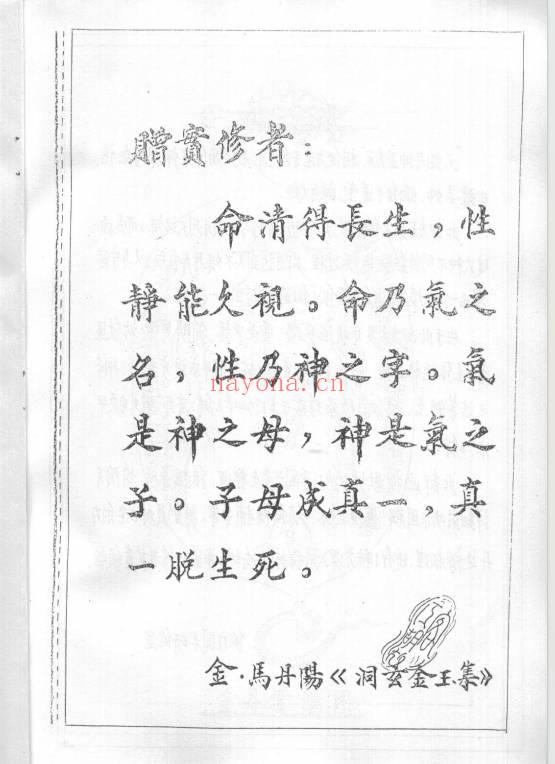 贈實修者：
命清得長生，性
靜能久視。命乃氣之
名，性乃神之字。氣
是神之母，神是氣之
子。子母成真一，真
一脫生死。
金·馬丹陽《洞玄金玉集》
nayona.cn